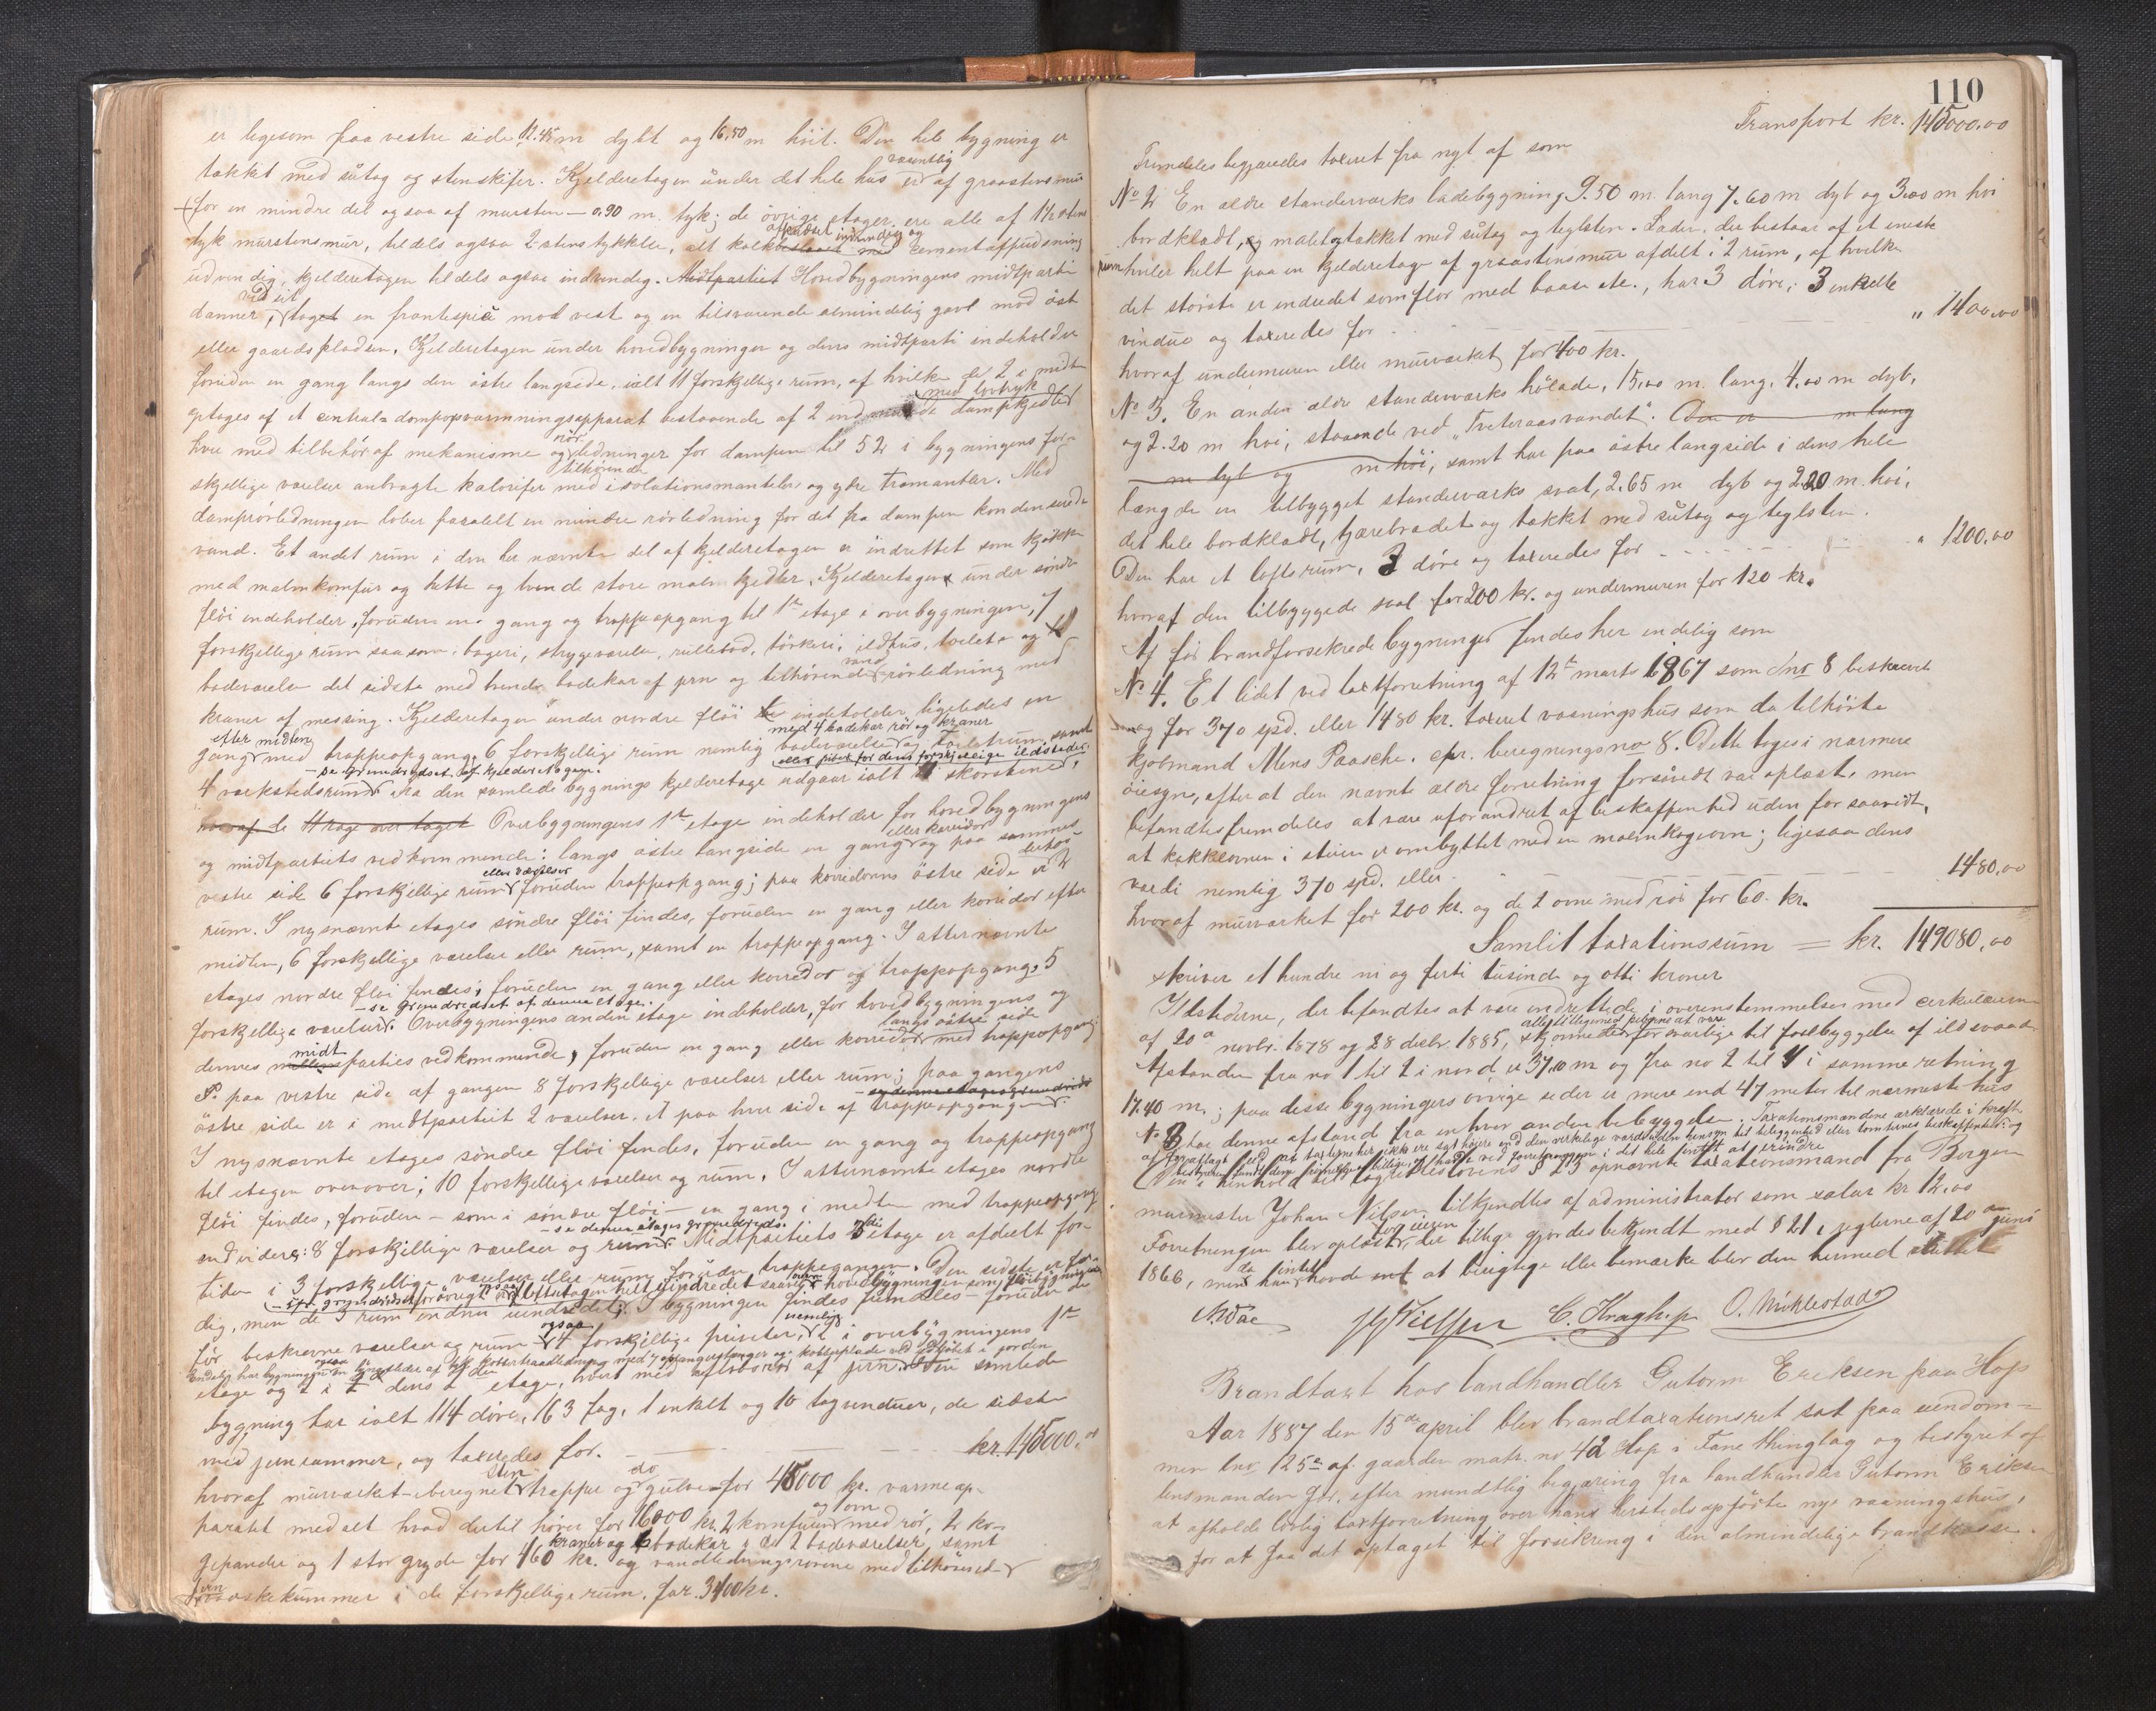 er ligesom paa vestre side 12.45 m dybt og 16.50 m höit. Den hele bygning er
takket med sutag og stenskifer. Kjelderetagen under det hele hus er væsentlig af graastensmur
for en mindre del ogsaa af mursten – 0.90 m. tyk; de övrige etager ere alle af 1½ stens
tyk murstensmur, tildels ogsaa 2 stens tykkelse, alt kalk indvendig og cementafpudsning
udvendig, kjelderetagen tildels ogsaa indvendig. Midtpartiet Hovedbygningens midtparti
danner, ved sit tag en frontespice mod vest og en tilsvarende almindelig gavl mod öst
eller gaardspladsen. Kjelderetagen under hovedbygningen og dens midtparti indeholder
foruden en gang langs den östre langside, ialt 11 forskjellige rum, af hvilke 2 i midten
optages af et central-dampopvarmningsapparat bestaaende af 2 dampkjedler med lavtryk
hver med tilbehör af mekanisme og rörledninger for dampen til 52 i bygningens for-
skjellige værelser anbragte kalorifer med tilhörende isolationsmantler og ydre Med
damprörledningen löber paralelt en mindre rörledning for det fra dampen kondenserede
vand. Et andet rum i den her nævnte del af kjelderetagen er indrettet som kjökken
med malmkomfur og hette og tvende store malmkjedler. Kjelderetagen under söndre
flöi indeholder, foruden en gang og trappeopgang til 1ste etage i overbygningen, 7
forskjellige rum saasom: bageri, strygeværelse, rullebod, törkeri, ildhus, toilet og
badeværelse det sidste med tvende badekar af jern og tilhörende vandrörledning med
kraner af messing. Kjelderetagen under nordre flöi indeholder ligeledes en
gang efter midten med trappeopgang, 6 forskjellige rum nemlig badeværelse med 4 badekar rör og kraner og toiletrum, samt
4 værkstedsrum – se Grundridset af kjelderetagen. Fra den samlede bygnings kjelderetage udgaar ialt skorstene, eller piber for dens forskjellige ildsteder.
hvoraf de 11 rage over taget Overbygningens 1ste etage indeholder for hovedbygningens
og midtpartiets vedkommende: langs östre langside en gang eller korridor og paa sammes
vestre side 6 forskjellige rum eller værelser foruden trappeopgang; paa korridorens östre side er 2
rum. I nysnævnte etages söndre flöi findes, foruden en gang eller korridor efter
midten, 6 forskjellige værelser eller rum, samt en trappeopgang. I atternævnte
etages nordre flöi findes, foruden en gang eller korridor og trappeopgang, 5
forskjellige værelser – se Grundridset af denne etage. Overbygningens anden etage indeholder, for hovedbygningens og
dennes midtparties vedkommende, foruden en gang eller korridor langs östre side med trappeopgang;
paa vestre side af gangen 8 forskjellige værelser eller rum; paa gangens
östre side er i midtpartiet 2 værelser, et paa hver side af trappeopgangen – se denne etages grundrids
I nysnævnte etages söndre flöi findes, foruden en gang og trappeopgang
til etagen ovenover; 10 forskjellige værelser og rum. I atternævnte etages nordre
flöi findes, foruden – som i söndre flöi – en gang i midten med trappeopgang
endvidere: 8 forskjellige værelser og rum – se denne etages grundrids. Midtpartiets 3die etage er afdeelt for
tiden i 3 forskjellige værelser eller rum, foruden trappegangen. Den sidste er fær-
dig, men de 3 rum endnu uindredet; I bygningen findes fremdeles – foruden de
för beskrevne værelser og rum – ogsaa 4 forskjellige priveter, nemlig 2 i overbygningens 1ste
etage og 2 i dens 2den etage, hvert med aflöbsrör af jern. Den samlede
bygning har ialt 114 döre, 163 fag, 1 enkelt og 10 tagvinduer, de sidste
med jernrammer, og taxeredes for. — kr. 145000.00
hvoraf murværket – beregnet sten trapper og do gulve – for 45000 kr. varmeap-
paratet med alt hvad dertil hörer for 16000 kr. 2 komfurer og ovn med rör, 2 ko-
gepander og 1 stor gryde for 460 kr. kraner og 6 badekar i de 2 badeværelser samt
og vandledningsrörene med tilhörende
jern vaskekummer i de forskjellige rum, for 3400 kr.
110
Transport kr. 145000.00
Fremdeles begjæredes taxeret fra nyt af som
No 2 En ældre standerværks ladebygning 9.50 m. lang 7.60 m dyb og 3.00 m höi
bordklædt, og malet og takket med sutag og teglsten. Laden, der bestaar af et eneste
rum hviler helt paa en kjelderetage af graastensmur afdelt i 2 rum, af hvilke
det störste er indredet som flor med baase etc., har 3 döre, 3 enkelte
vinduer og taxeredes for — " 1400.00
hvoraf undermuren eller murværket for 400 kr.
No 3. En anden ældre standerværks hölade, 15.00 m. lang, 4.00 m dyb,
og 2.20 m höi, staaende ved "Tveteraasvandet". Den er m lang
m dyb og m höi, samt har paa östre langside i dens hele
længde en tilbygget standerværks sval, 2.65 m dyb og 2.20 m. höi,
det hele bordklædt, tjærebrædet og takket med sutag og teglsten.
Den har et loftsrum, 3 döre og taxeredes for — " 1200.00
hvoraf den tilbyggede sval for 200 kr. og undermuren for 120 kr.
Af för brandforsikrede bygninger findes her endelig som
No 4. Et lidet ved taxtforretning af 12te marts 1867 som Lnr 8 beskrevet
og for 370 spd. eller 1480 kr. taxeret vaaningshus som da tilhörte
kjöbmand Mens Paasche. cfr. beregningsno 8. Dette toges i nærmere
öiesyn, efter at den nævnte ældre forretning forsaavidt var oplæst, men
befandtes fremdeles at være uforandret af beskaffenhed uden for saavidt,
at kakkelovnen i stuen er ombyttet med en malmkogeovn; ligesaa dens
værdi nemlig 370 spd. eller — 1480.00
hvoraf murværket for 200 kr. og de 2 ovne med rör for 60 kr.
Samlet taxationssum = kr. 149080.00
skriver et hundre ni og firti tusinde og otti kroner
Ildstederne, der befandtes at være indrettede i overenstemmelse med cirkulærerne
af 20de novbr. 1878 og 28 decbr. 1885, skjönnedes alle tilligemed piberne at være forsvarlige til forebyggelse af ildsvaade
Afstanden fra no 1 til 2 i nord er 37.10 m og fra no 2 til 4 i samme retning
17.40 m.; paa disse bygningers övrige sider er mere end 47 meter til nærmeste hus
No 3 har denne afstand fra enhver anden bebyggelse. Taxationsmændene erklærede i kraft
af foraflagt ed at taxterne her ikke ere sat höiere end den virkelige værdi uden hensyn til beliggenhed eller tomternes beskaffenhed og
Den i henhold til lovens § 23 opnævnte taxationsmand fra Bergen
murmester Johan Nilsen tilkjendtes af administrator som salær kr 12.00
Forretningen blev oplæst for eieren, der tillige gjordes bekjendt med § 21 i reglerne af 20de juni
1866, men da han intet havde at berigtige eller bemærke blev den hermed sluttet
JNilssen C. Kragh.p. O. Mikkelstad
Brandtaxt hos landhandler Gutorm Eriksen paa Hop
Aar 1887 den 15de april blev brandtaxationsret sat paa eiendom-
men lnr 125a af gaarden matr. no 42 Hop i Fane thinglag og bestyret af
lensmanden för, efter mundtlig begjæring fra landhandler Gutorm Eriksen
at afholde lovlig taxtforretning over hans hersteds opförte nye vaaningshus,
for at faa det optaget til forsikring i den almindelige brandkasse.